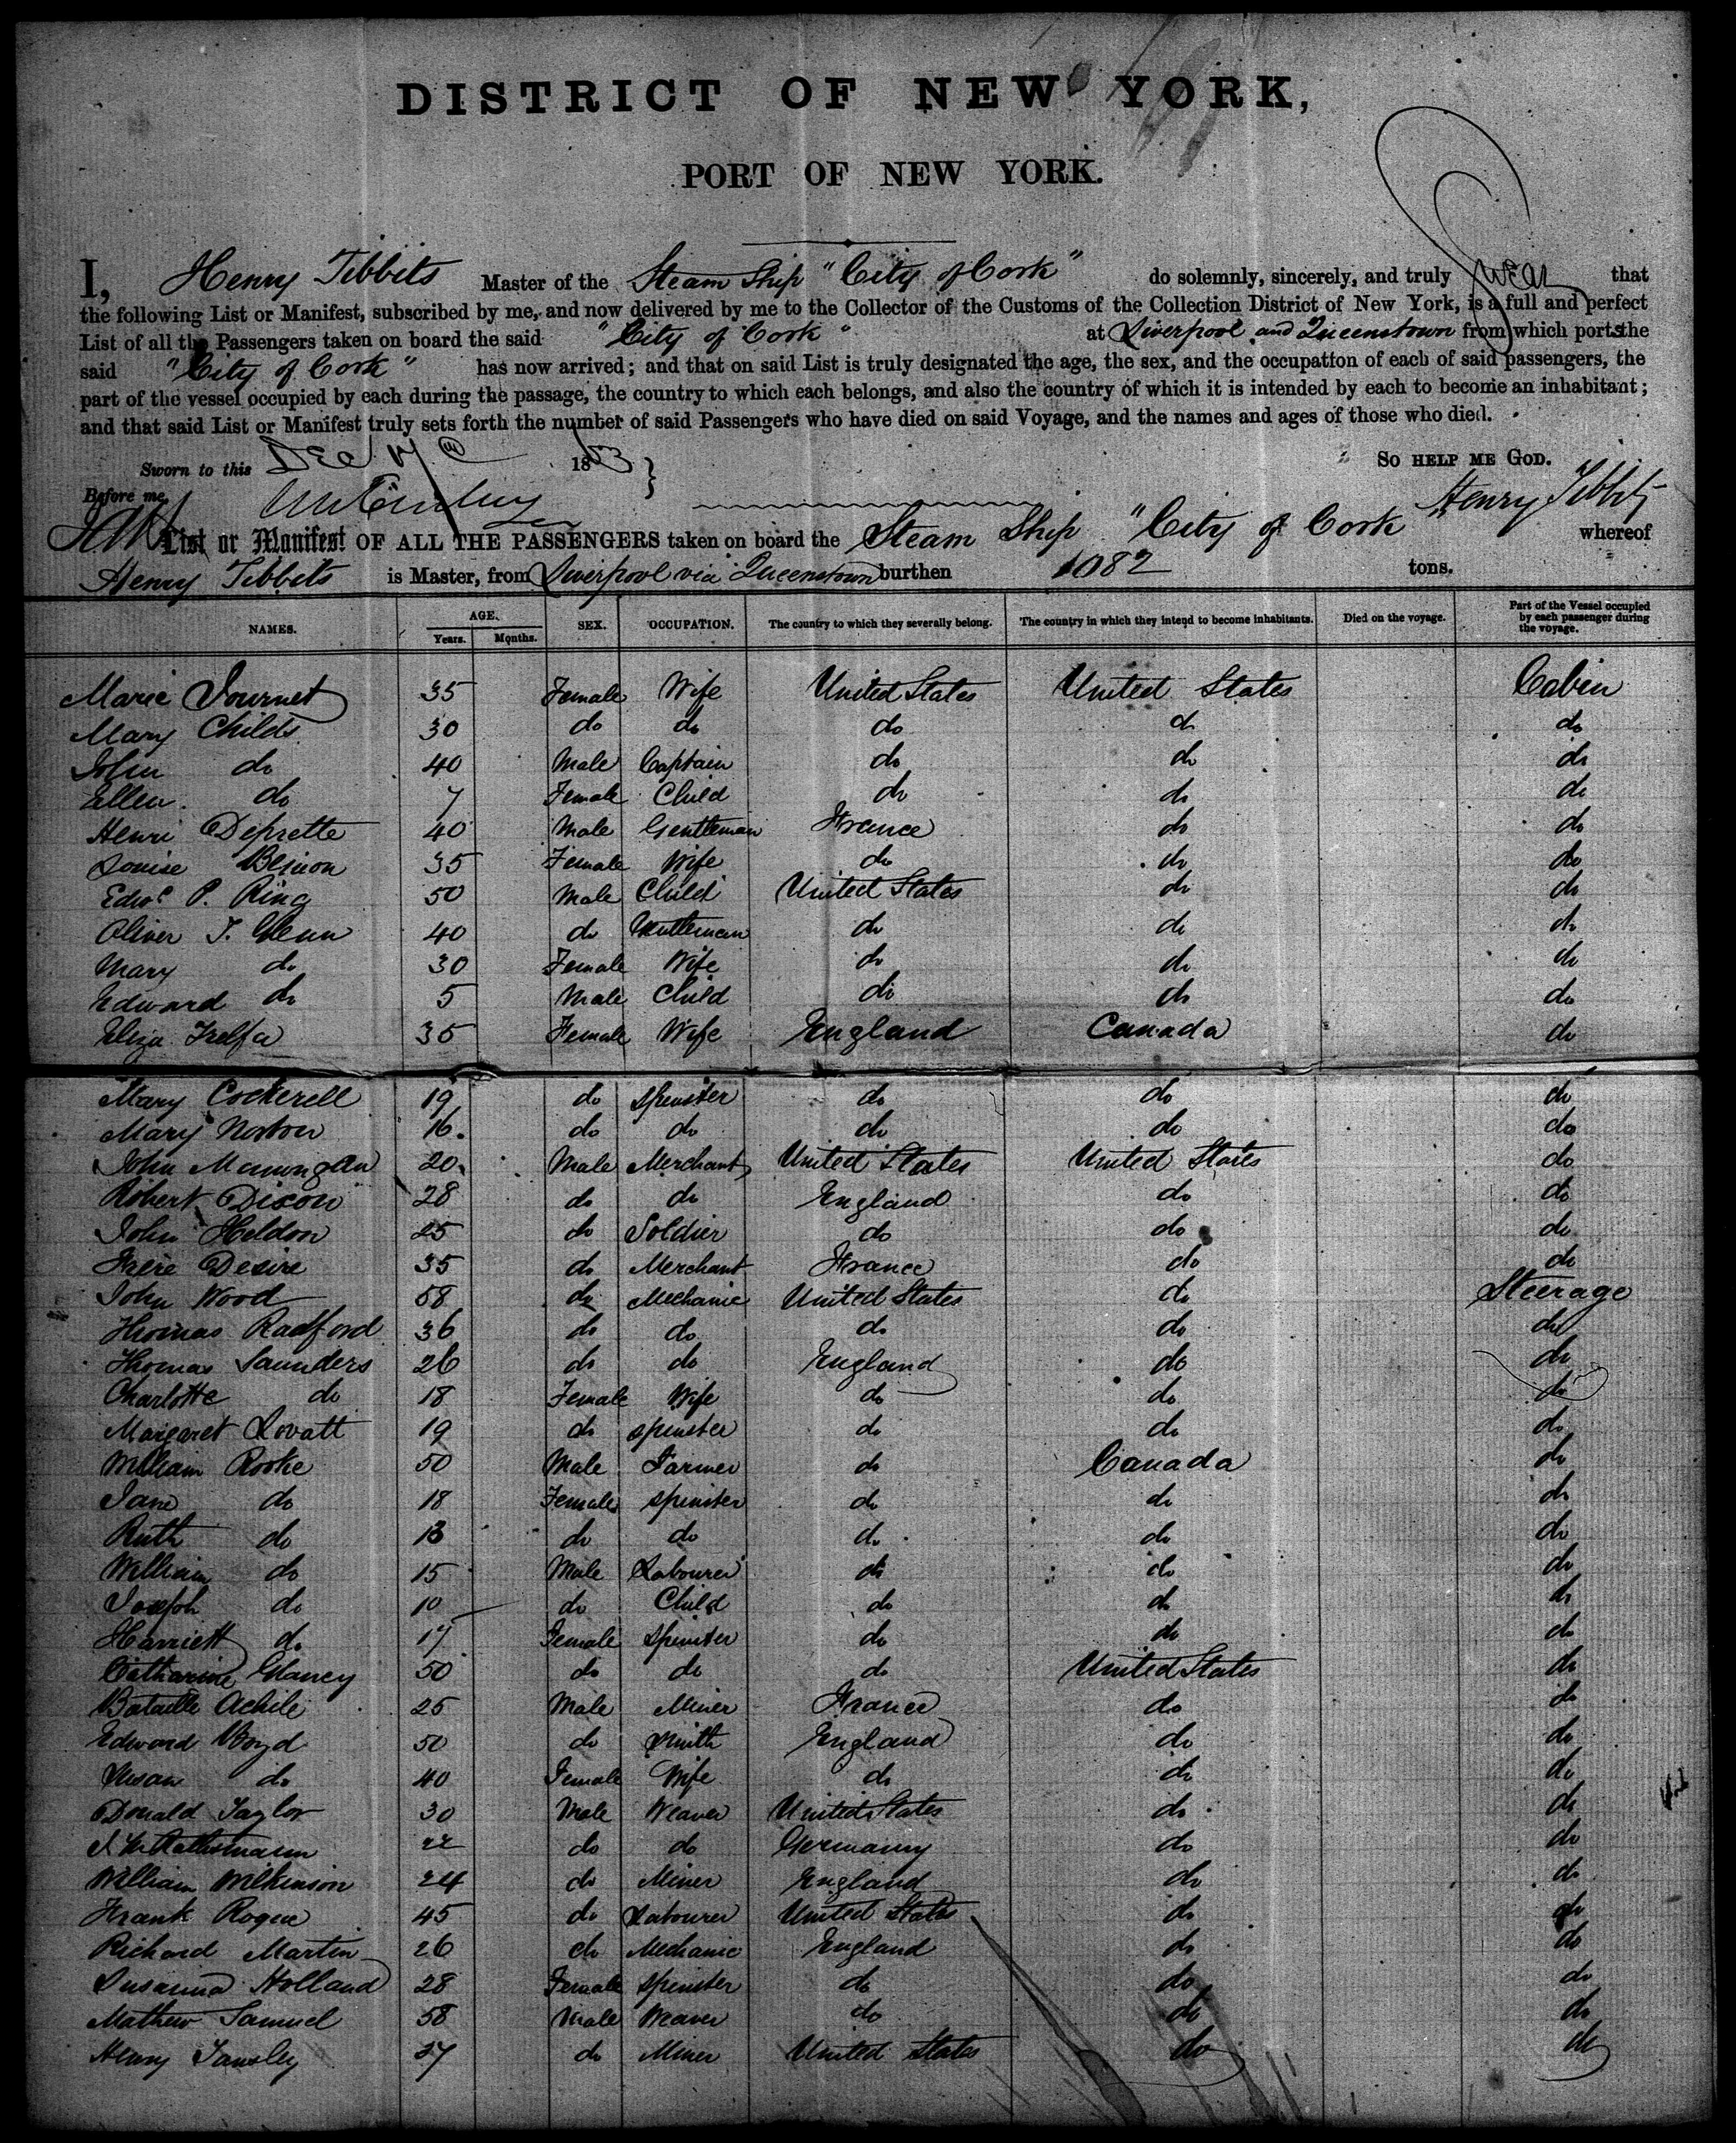 DISTRICT OF NEW YORK,
PORT OF NEW YORK.
I, Henry Tibbits Master of the Steam Ship "City of Cork" do solemnly, sincerely, and truly swear that
the following List or Manifest, subscribed by me, and now delivered by me to the Collector of the Customs of the Collection District of New York, is a full and perfect
List of all the Passengers taken on board the said "City of Cork" at Liverpool and Queenstown from which ports the
said "City of Cork" has now arrived; and that on said List is truly designated the age, the sex, and the occupation of each of said passengers, the
part of the vessel occupied by each during the passage, the country to which each belongs, and also the country of which it is intended by each to become an inhabitant;
and that said List or Manifest truly sets forth the number of said Passengers who have died on said Voyage, and the names and ages of those who died.
Sworn to this Dec 17 1863 } So HELP ME GOD.
Before me, Henry Tibbits
List or Manifest OF ALL THE PASSENGERS taken on board the Steam Ship "City of Cork" whereof
Henry Tibbits is Master, from Liverpool via Queenstown burthen 1082 tons.
NAMES. AGE. Years. Months. SEX. OCCUPATION. The country to which they severally belong. The country in which they intend to become inhabitants. Died on the voyage. Part of the Vessel occupied by each passenger during the voyage.
Marie Journet 35 Female Wife United States United States Cabin
Mary Childs 30 do do do do do
John do 40 Male Captain do do do
Ellen do 7 Female Child do do do
Henri Deprette 40 Male Gentleman France do do
Louise 35 Female Wife do do do
Edwd P. Ring 50 Male Child United States do do
Oliver T. Glenn 40 do Gentleman do do do
Mary do 30 Female Wife do do do
Edward do 5 Male Child do do do
Eliza Trelfa 35 Female Wife England Canada do
Mary Cockerell 19 do spinster do do do
Mary Norton 16 do do do do do
John 20 Male Merchant United States United States do
Robert Dixon 28 do do England do do
John Heldon 25 do Soldier do do do
Frere Desire 35 do Merchant France do do
John Wood 58 do Mechanic United States do Steerage
Thomas Radford 36 do do do do do
Thomas Saunders 26 do do England do do
Charlotte do 18 Female Wife do do do
Margaret Lovatt 19 do spinster do do do
William Rooke 50 Male Farmer do Canada do
Jane do 18 Female spinster do do do
Ruth do 13 do do do do do
William do 15 Male Labourer do do do
Joseph do 10 do Child do do do
Harriett do 17 Female spinster do do do
Catharine Glancy 50 do do do United States do
Bataille Achile 25 Male Miner France do do
Edward Boyd 50 do Smith England do do
Susan do 40 Female Wife do do do
Donald Taylor 30 Male Weaver United States do do
22 do do Germany do do
William Wilkinson 24 do Miner England do do
Frank Rogue 45 do Labourer United States do do
Richard Martin 26 do Mechanic England do do
Susanna Holland 28 Female spinster do do do
Mathew Samuel 58 Male Weaver do do do
Henry Tansley 37 do Miner United States do do